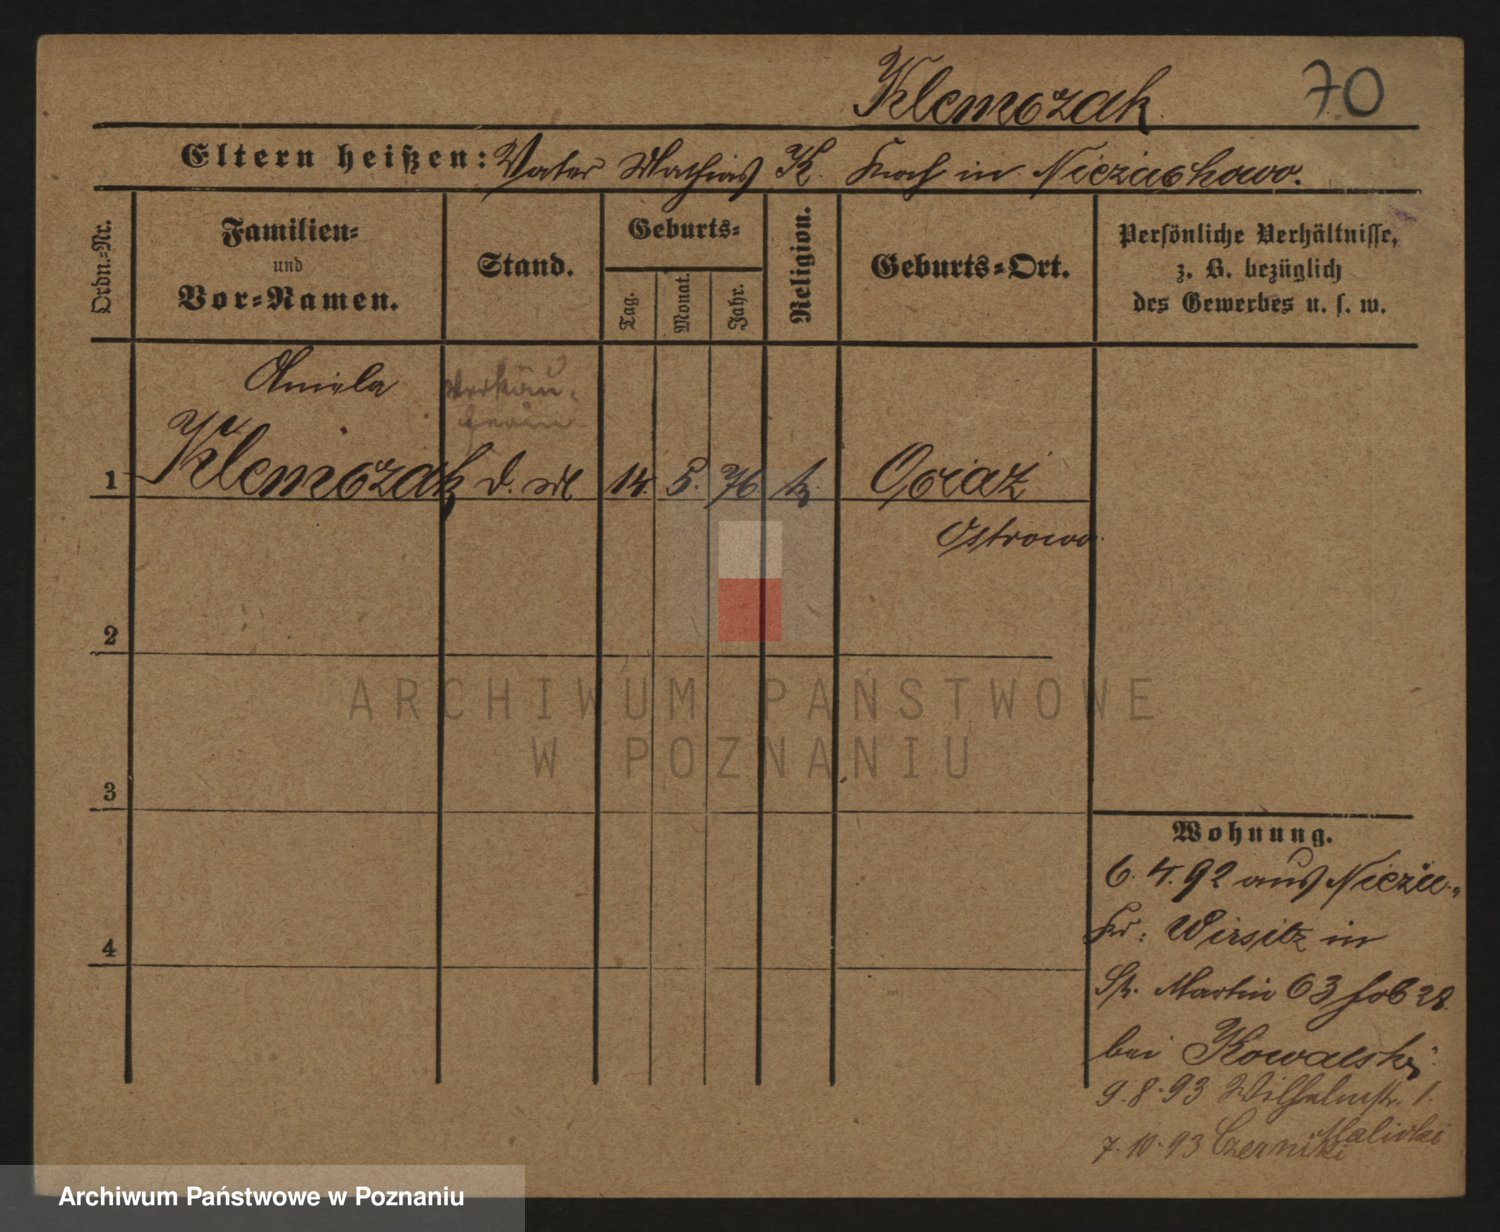 Klemczak 70
Eltern heißen: Vater Mathias K. Koch in Niezuchowo.
Ordn.-Nr.
Familien-
und
Vor-Namen.
Stand.
Geburts-
Tag.
Monat.
Jahr.
Religion.
Geburts-Ort.
Persönliche Verhältnisse,
z. B. bezüglich
des Gewerbes u. s. w.
Aniela
Verkäu-
ferin
1 Klemczak d. 14. 5. 76 k. Ociaż
Ostrowo
2
3
4
Wohnung.
6. 4. 92 aus Niezu-
Kr: Wirsitz in
St. Martin 63
bei Kowalski
9. 8. 93 Wilhelmstr. 1.
Malicki
7. 10. 93 Czerniki
ARCHIWUM PAŃSTWOWE
W POZNANIU
Archiwum Państwowe w Poznaniu